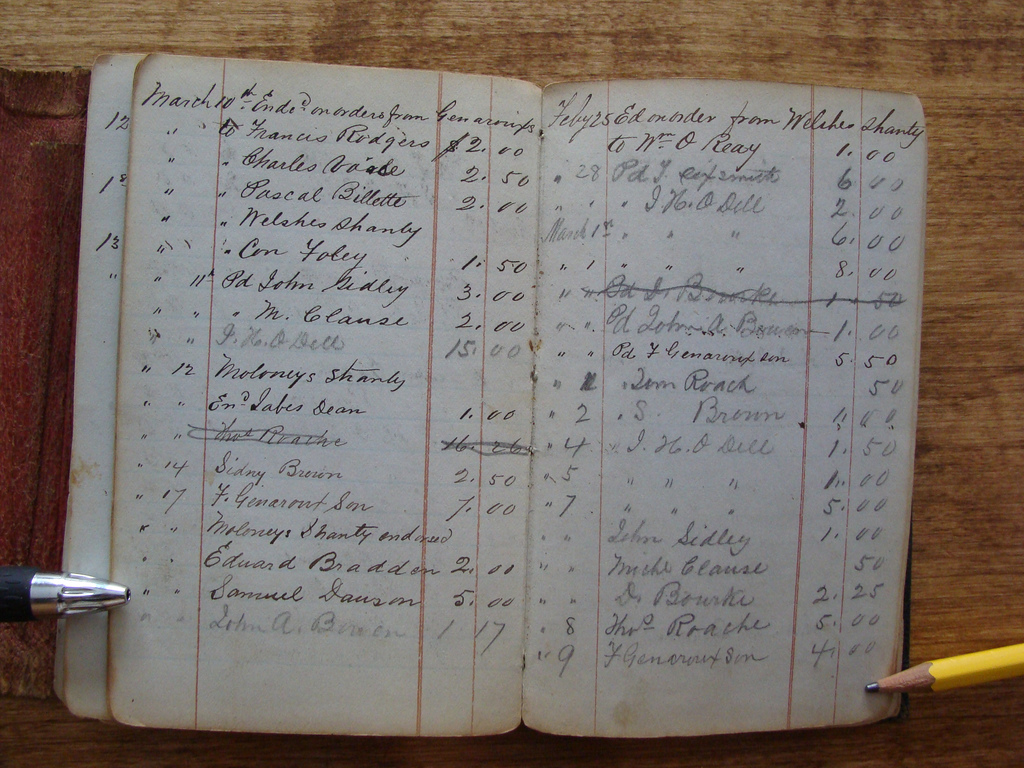 March 10th End'd on orders from Genarouxs
12 " to Francis Rodgers $2.00
" " Charles 2.50
18 " " Pascal Billette 2.00
" " Welshes Shanty
13 " " Con Foley 1.50
" " 11th Pd John Sidley 3.00
" " " M. Clause 2.00
" " J. H. O Dell 15.00
" 12 Moloneys Shanty
" " End Jabes Dean 1.00
" " Thos Roache 16.26
" 14 Sidny Brown 2.50
" 17 F. Genaroux Son 7.00
" " Moloneys Shanty endorsed
" " Eduard Braddon 2.00
" " Samuel Dawson 5.00
" " John A. Bowen 1 17
Feby 25 Ed on order from Welshes Shanty
to Wm O Keay 1.00
" 28 Pd J. 6 00
" " " J H. O Dell 2.00
March 1st " " " 6.00
" 1 " " " 8.00
" " Pd D. Bourke 1.50
" " Pd John A. Bowen 1.00
" " Pd F Genaroux son 5.50
" 1 " Tom Roach 50
" 2 " S. Brown 1.00
" 4 " J. H. O Dell 1.50
" 5 " " " 1.00
" 7 " " " 5.00
" " John Sidley 1.00
" " Miche Clause 50
" " D. Bourke 2.25
" 8 Thos Roache 5.00
" 9 F Genaroux Son 4.00